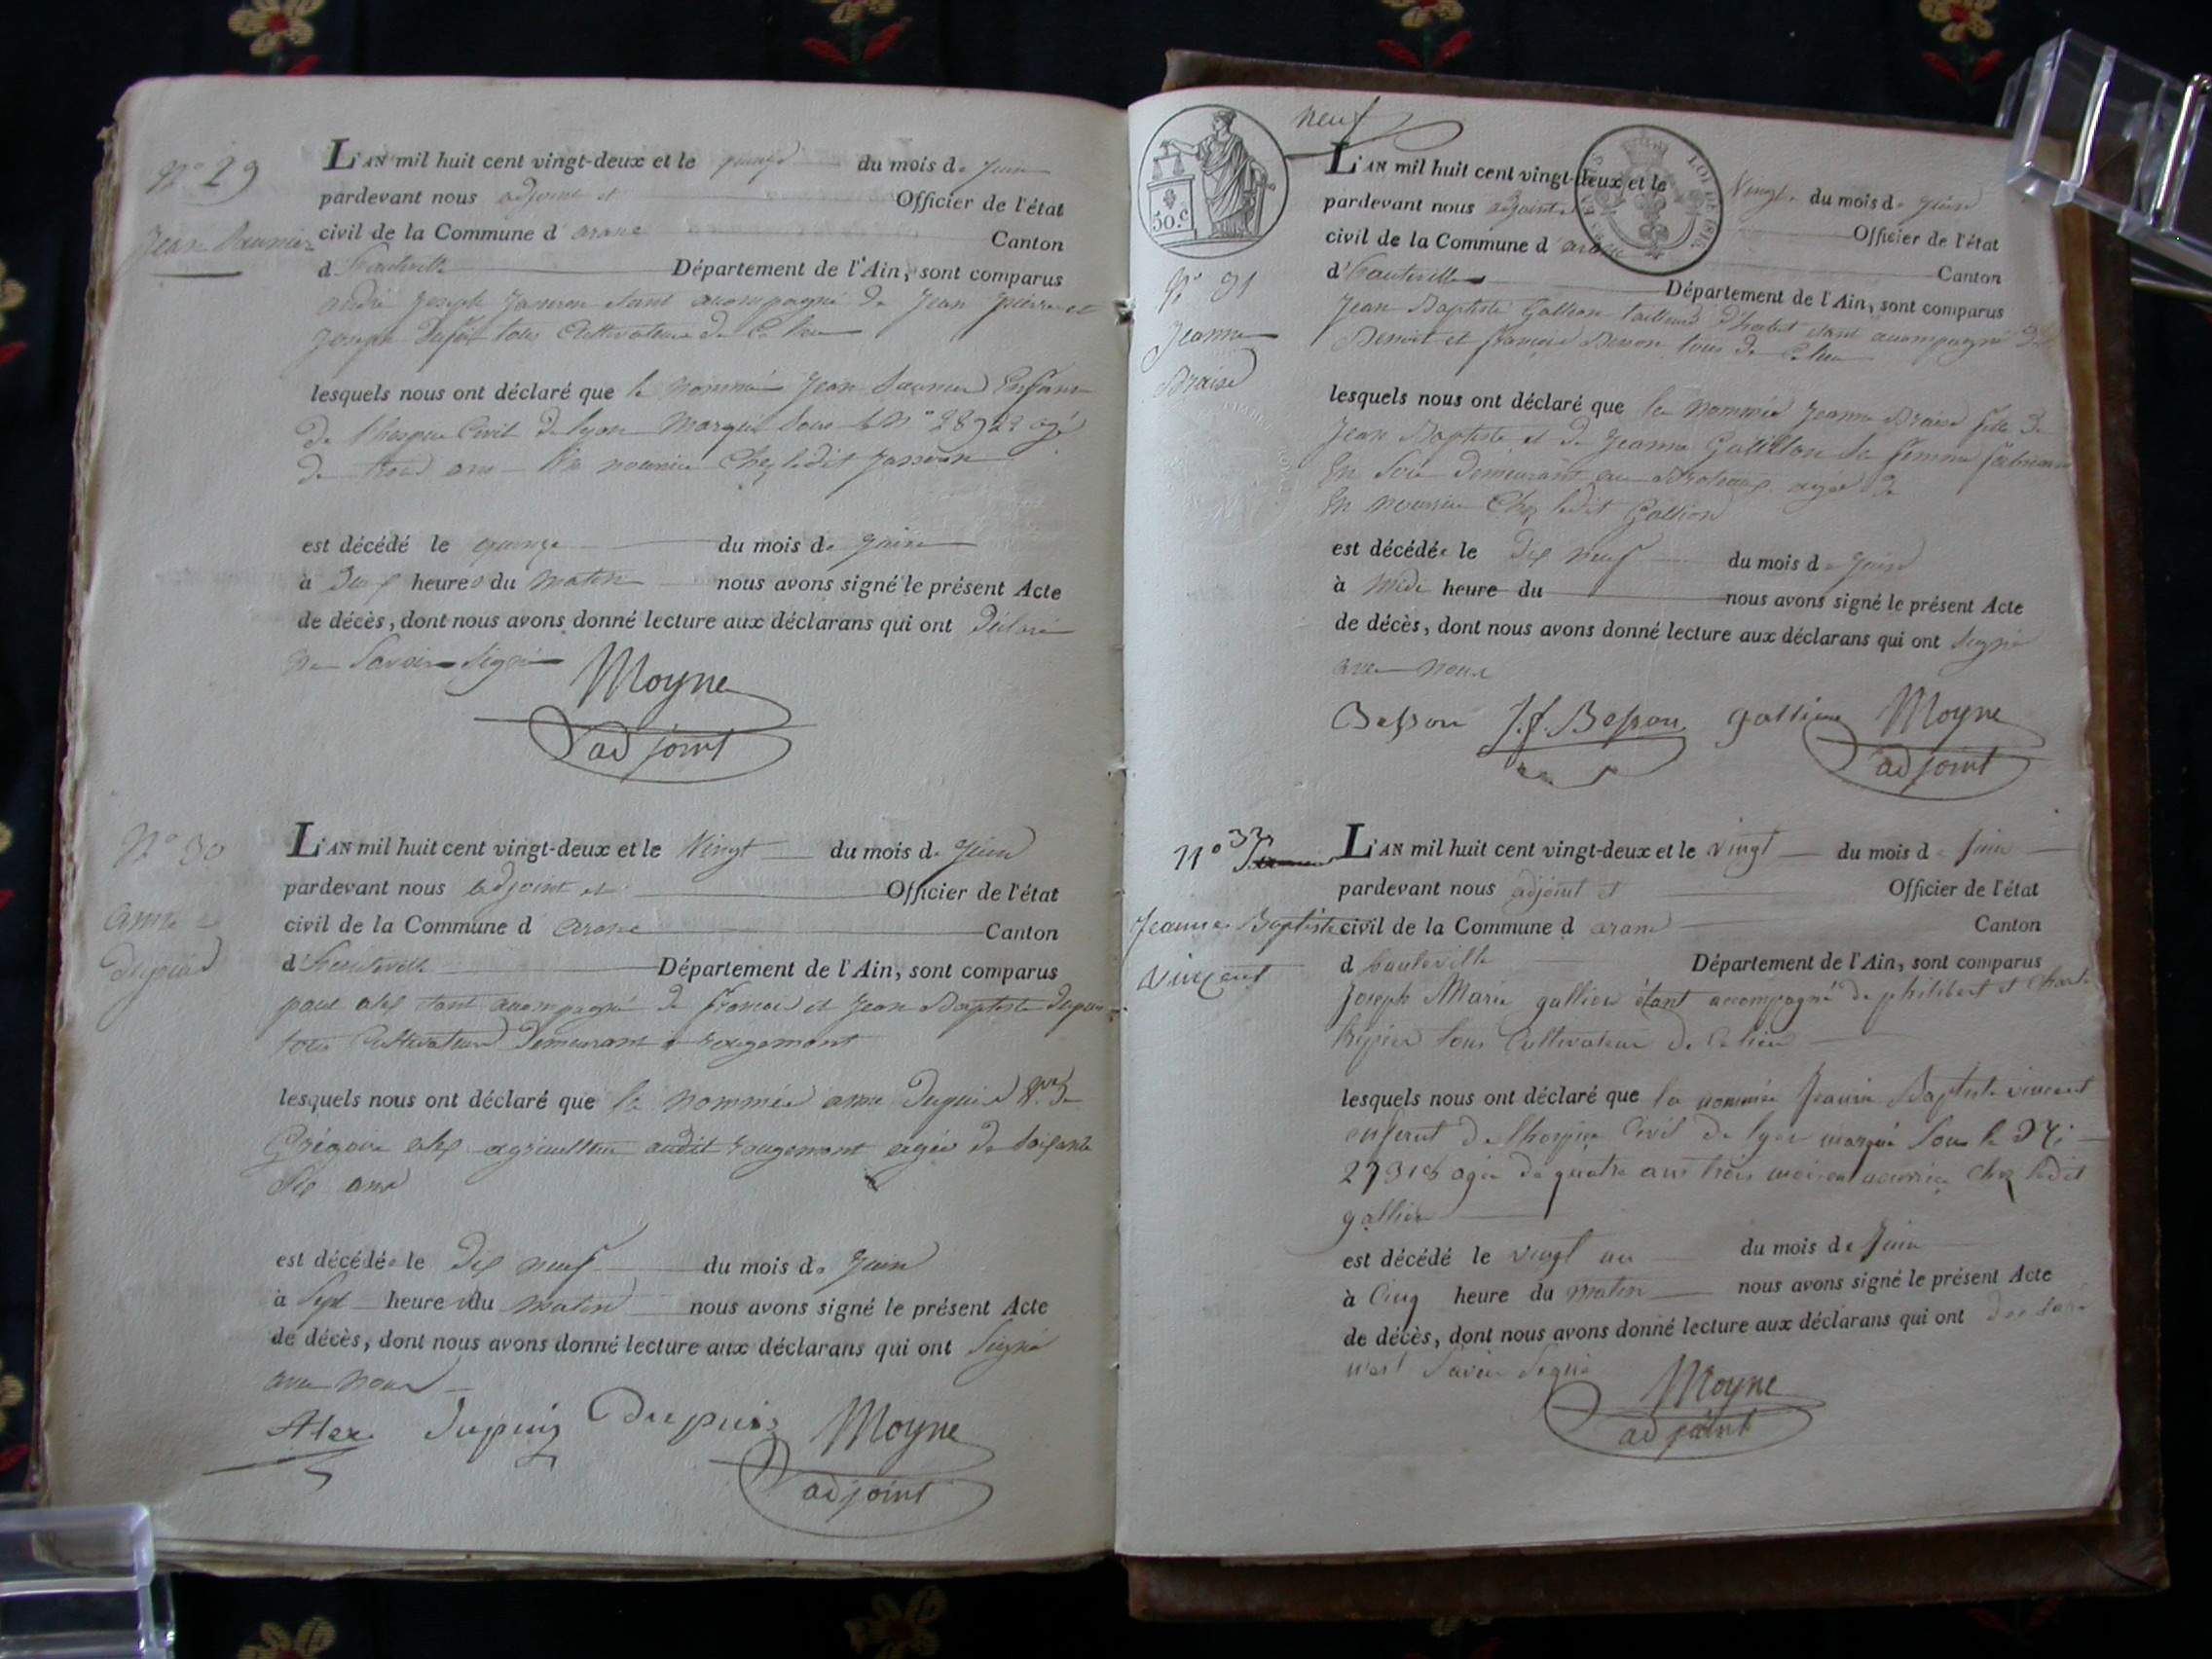 N° 29
Jean Saunier
L'AN mil huit cent vingt-deux et le quinze du mois de Juin
pardevant nous adjoint et Officier de l'état
civil de la Commune d'arane Canton
d'hauteville Département de l'Ain, sont comparus
andré Joseph Janeron étant accompagné de Jean pierre et
Joseph tous Cultivateurs de Ce lieu
lesquels nous ont déclaré que le nommé Jean Saunier Enfant
de l'hospice Civil de lyon Marqué Sous le N° 28922 agé
de trois ans En nourrice Chez ledit
est décédé le quinze du mois de Juin
à heures du Matin nous avons signé le présent Acte
de décès, dont nous avons donné lecture aux déclarans qui ont Déclaré
ne Savoir Signer
Moyne
adjoint
N° 30
anne
Dupuis
L'AN mil huit cent vingt-deux et le Vingt du mois de Juin
pardevant nous adjoint et Officier de l'état
civil de la Commune d arane Canton
d'hauteville Département de l'Ain, sont comparus
paul alex étant accompagné de francois et Jean Baptiste Dupuis
tous Cultivateurs Demeurant a rougemont
lesquels nous ont déclaré que la nommée anne Dupuis Ve De
Grégoire alex agriculteur audit rougemont agée de Soixante
Six ans
est décédée le Dix neuf du mois de Juin
à Sept heure du matin nous avons signé le présent Acte
de décès, dont nous avons donné lecture aux déclarans qui ont Signé
avec Nous
Alex Dupuis Dupuis Moyne
adjoint
neuf
50 c.
LOI DE 1816
N° 31
Jeanne
Braise
L'AN mil huit cent vingt-deux et le Vingt du mois de Juin
pardevant nous adjoint Officier de l'état
civil de la Commune d'arane Canton
d'hauteville Département de l'Ain, sont comparus
Jean Baptiste Gallion tailleur d'habit étant accompagné de
Benoit et françois Besson tous de Ce lieu
lesquels nous ont déclaré que la nommée Jeanne Braise fille De
Jean Baptiste et de Jeanne Sa femme
En Soie Demeurant aux agée De
En nourrice Chez ledit Gallion
est décédée le Dix neuf du mois de Juin
à midi heure du nous avons signé le présent Acte
de décès, dont nous avons donné lecture aux déclarans qui ont Signé
avec nous
Besson J.f. Besson gallion Moyne
adjoint
N° 33
Jeanne Baptiste
Vincent
L'AN mil huit cent vingt-deux et le vingt du mois de Juin
pardevant nous adjoint et Officier de l'état
civil de la Commune d arane Canton
d hauteville Département de l'Ain, sont comparus
Joseph Marie gallion étant accompagné de philibert et
tous Cultivateur de Ce lieu
lesquels nous ont déclaré que la nommée Jeanne Baptiste vincent
enfant de lhospice Civil de lyon marqué Sous le N°
27318 agée de quatre ans trois mois en nourrice Chez ledit
gallion
est décédé le vingt un du mois de Juin
à Cinq heure du matin nous avons signé le présent Acte
de décès, dont nous avons donné lecture aux déclarans qui ont
Savoir Signé
Moyne
adjoint